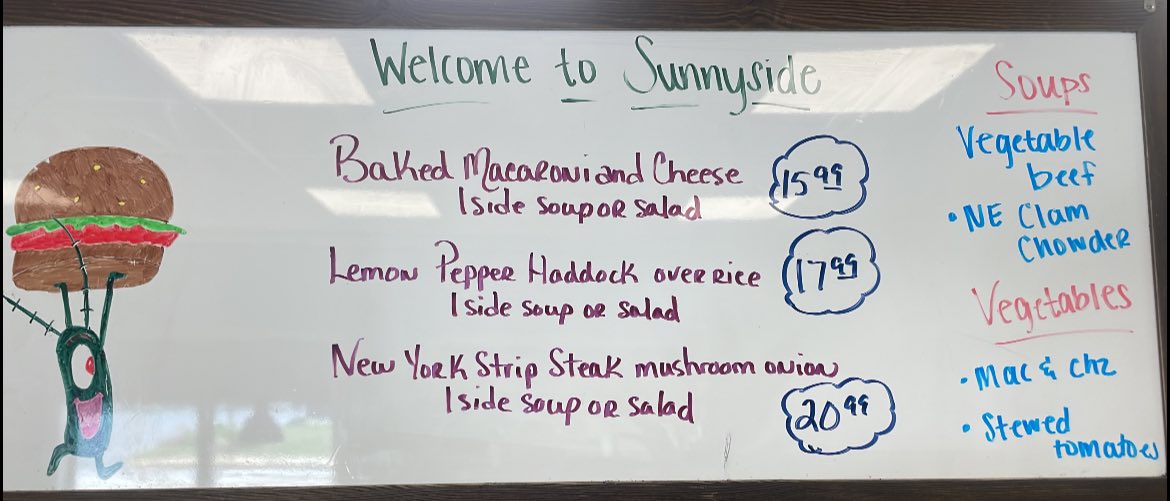 Welcome to Sunnyside
Baked Macaroni and Cheese 15.99
1 side soup or salad
Lemon Pepper Haddock over rice 17.99
1 side soup or salad
New York Strip Steak mushroom onion
1 side soup or salad 20.99
Soups
Vegetable
beef
• NE Clam
Chowder
Vegetables
• Mac & chz
• Stewed
tomatoes